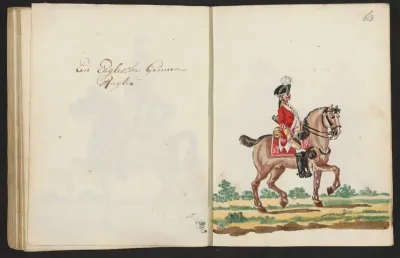 Ein Englischer Gemein
Reyter
63